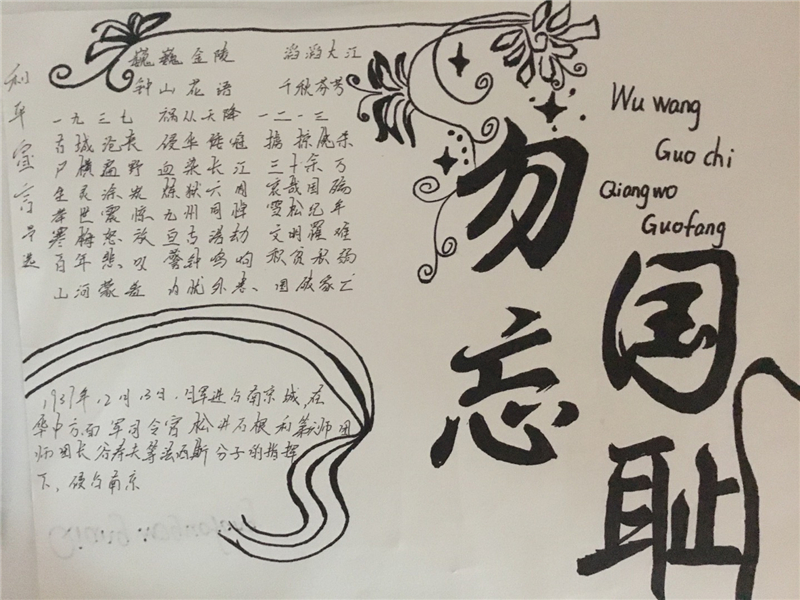 和平宣言节选
巍巍金陵 滔滔大江
钟山花语 千秋芬芳
一九三七 祸从天降 一二一三
古城沦丧 侵华倭寇 掳掠屠杀
尸横遍野 血染长江 三十余万
生灵涂炭 炼狱六周 哀哉国殇
举世震惊 九州同悼 雪松纪年
寒梅怒放 亘古浩劫 文明罹难
百年悲叹 警钟鸣响 积贫积弱
山河蒙羞 内忧外患、国破家亡
1937年12月13日.日军进占南京城,在
华中方面军司令官松井石根和第六师团
师团长谷寿夫等法西斯分子的指挥
下、侵占南京
勿忘
国耻
Wu wang
Guo chi
Qiangwo
Guofang